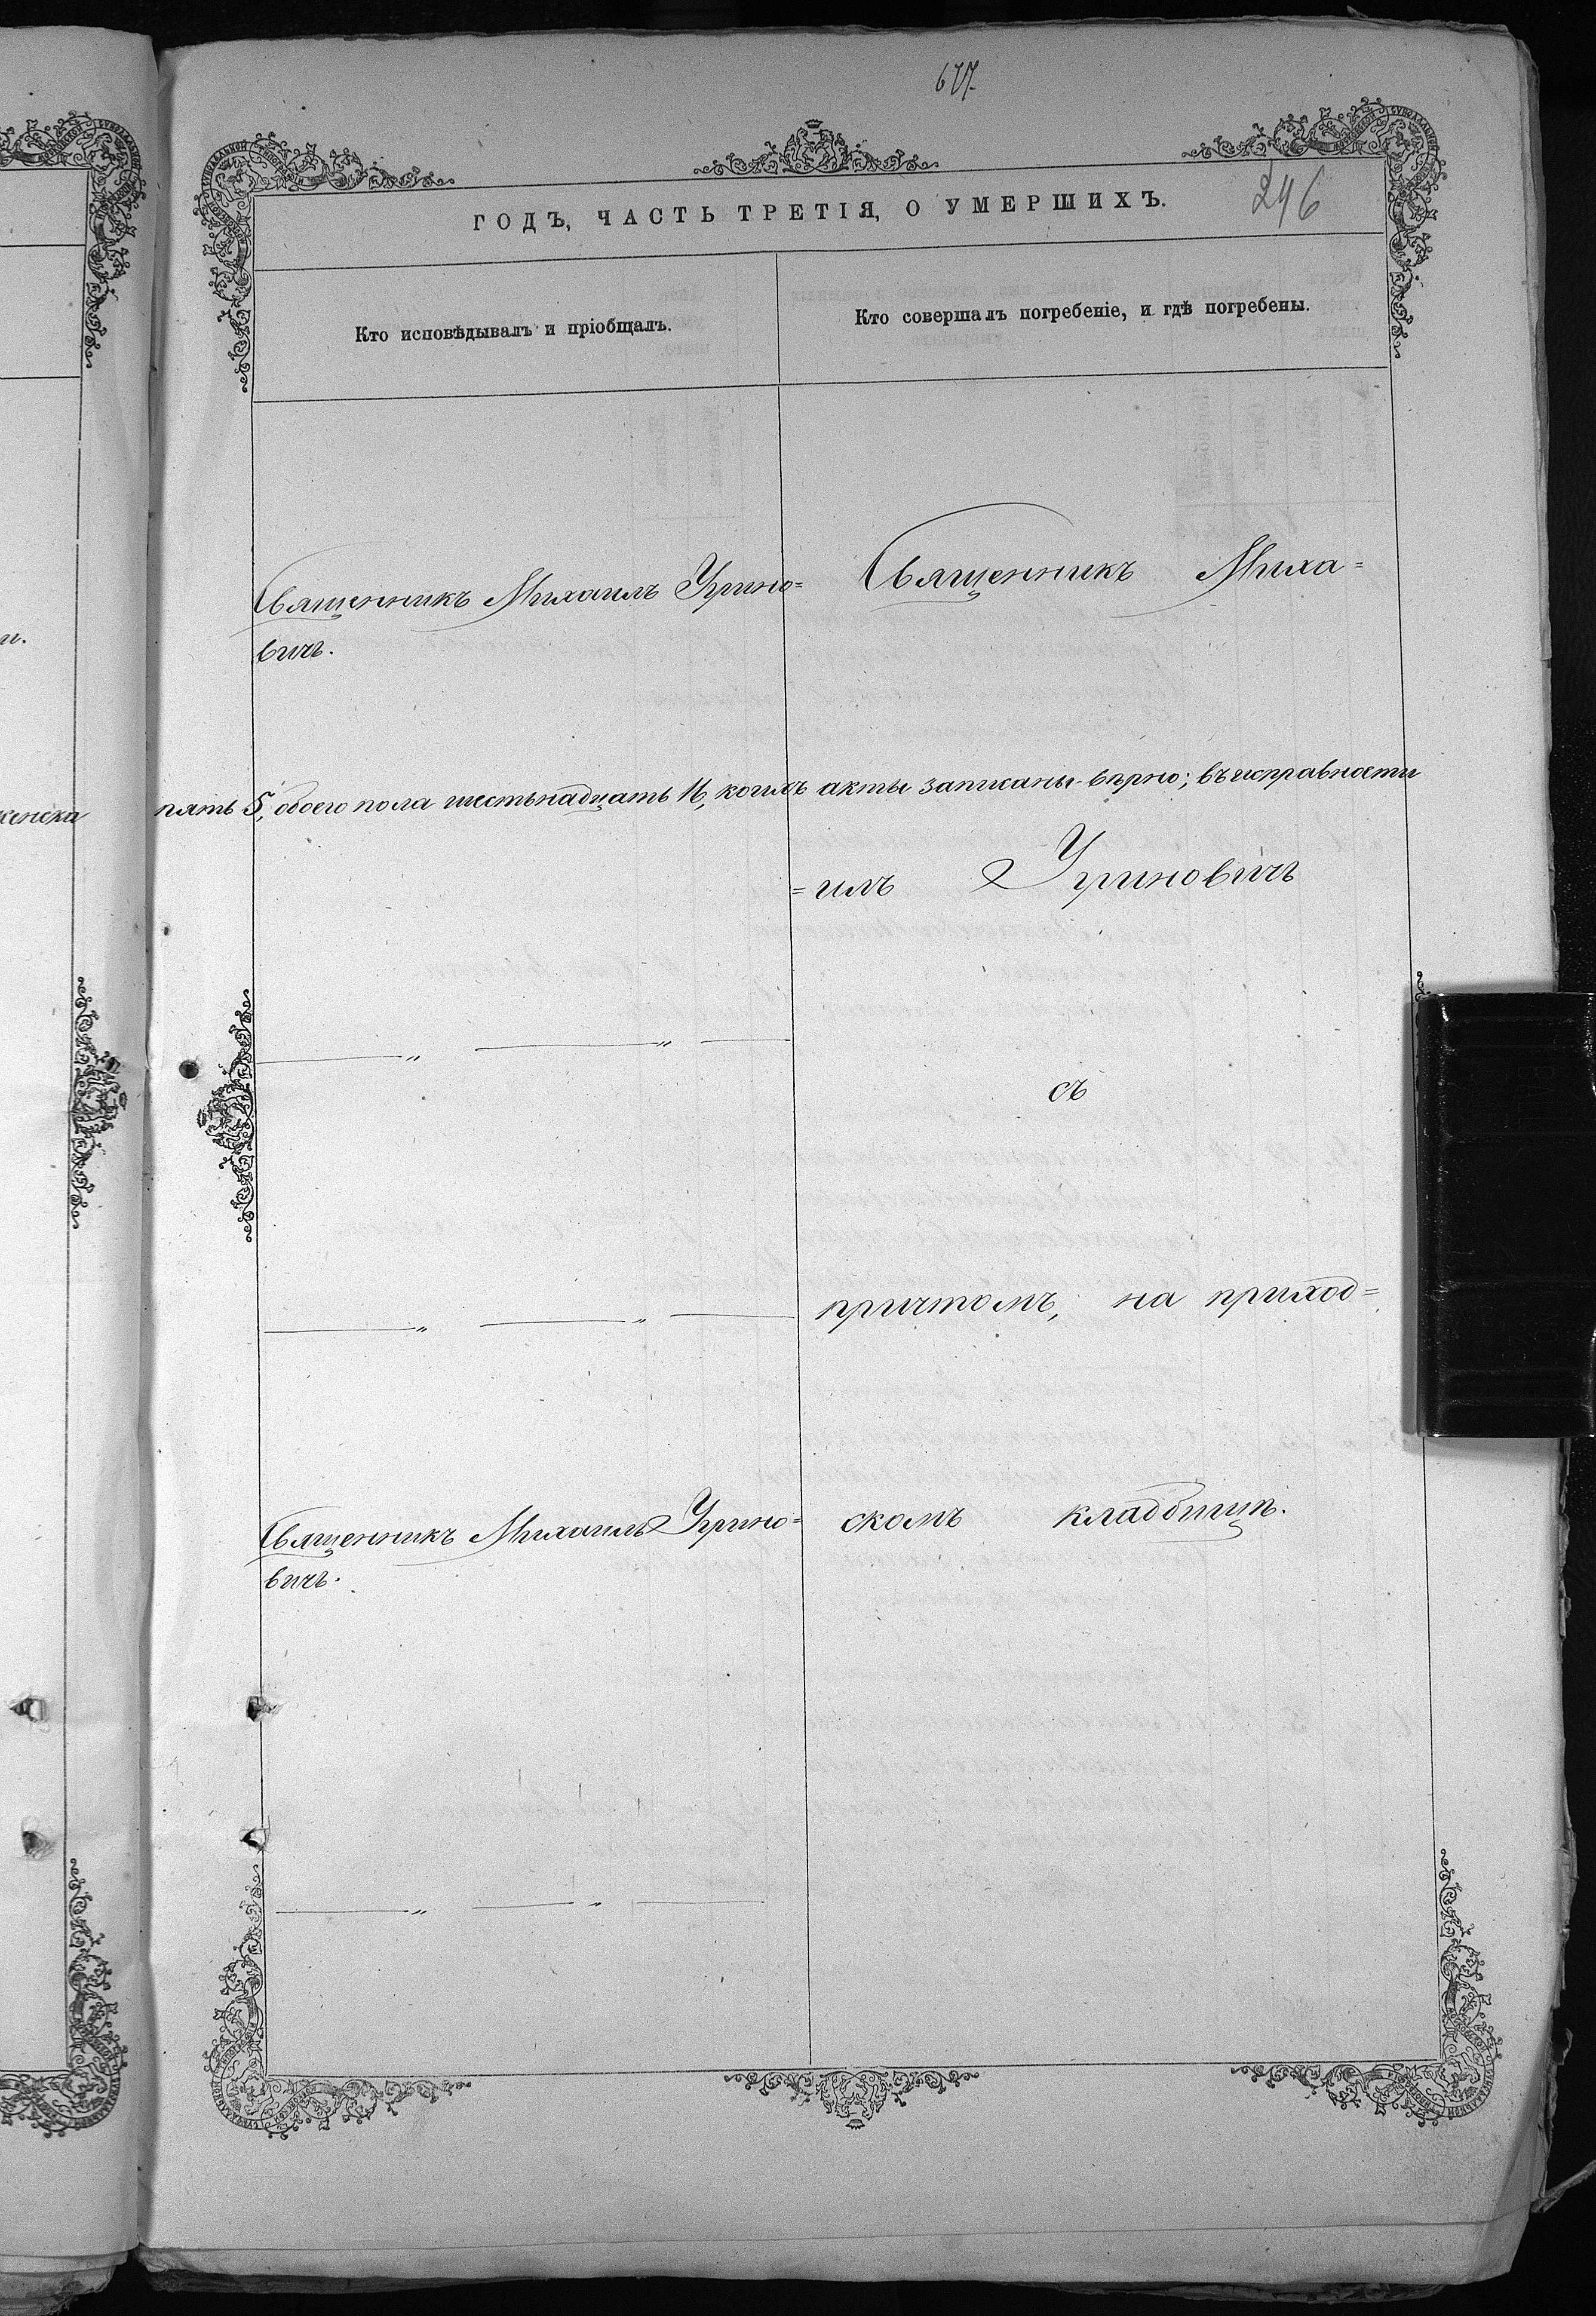 677.
246
ГОДЪ, ЧАСТЬ ТРЕТІЯ, О УМЕРШИХЪ.
Кто исповѣдывалъ и пріобщалъ.
Кто совершалъ погребеніе, и гдѣ погребены.
Священникъ Михаилъ Урино=
вичъ.
Священникъ Миха=
пять 5, обоего пола шестьнадцать 16, коихъ акты записаны вѣрно; въ исправности
=илъ Уриновичъ
съ
причтомъ, на приход=
Священникъ Михаилъ Урино=
вичъ.
скомъ кладбищѣ.